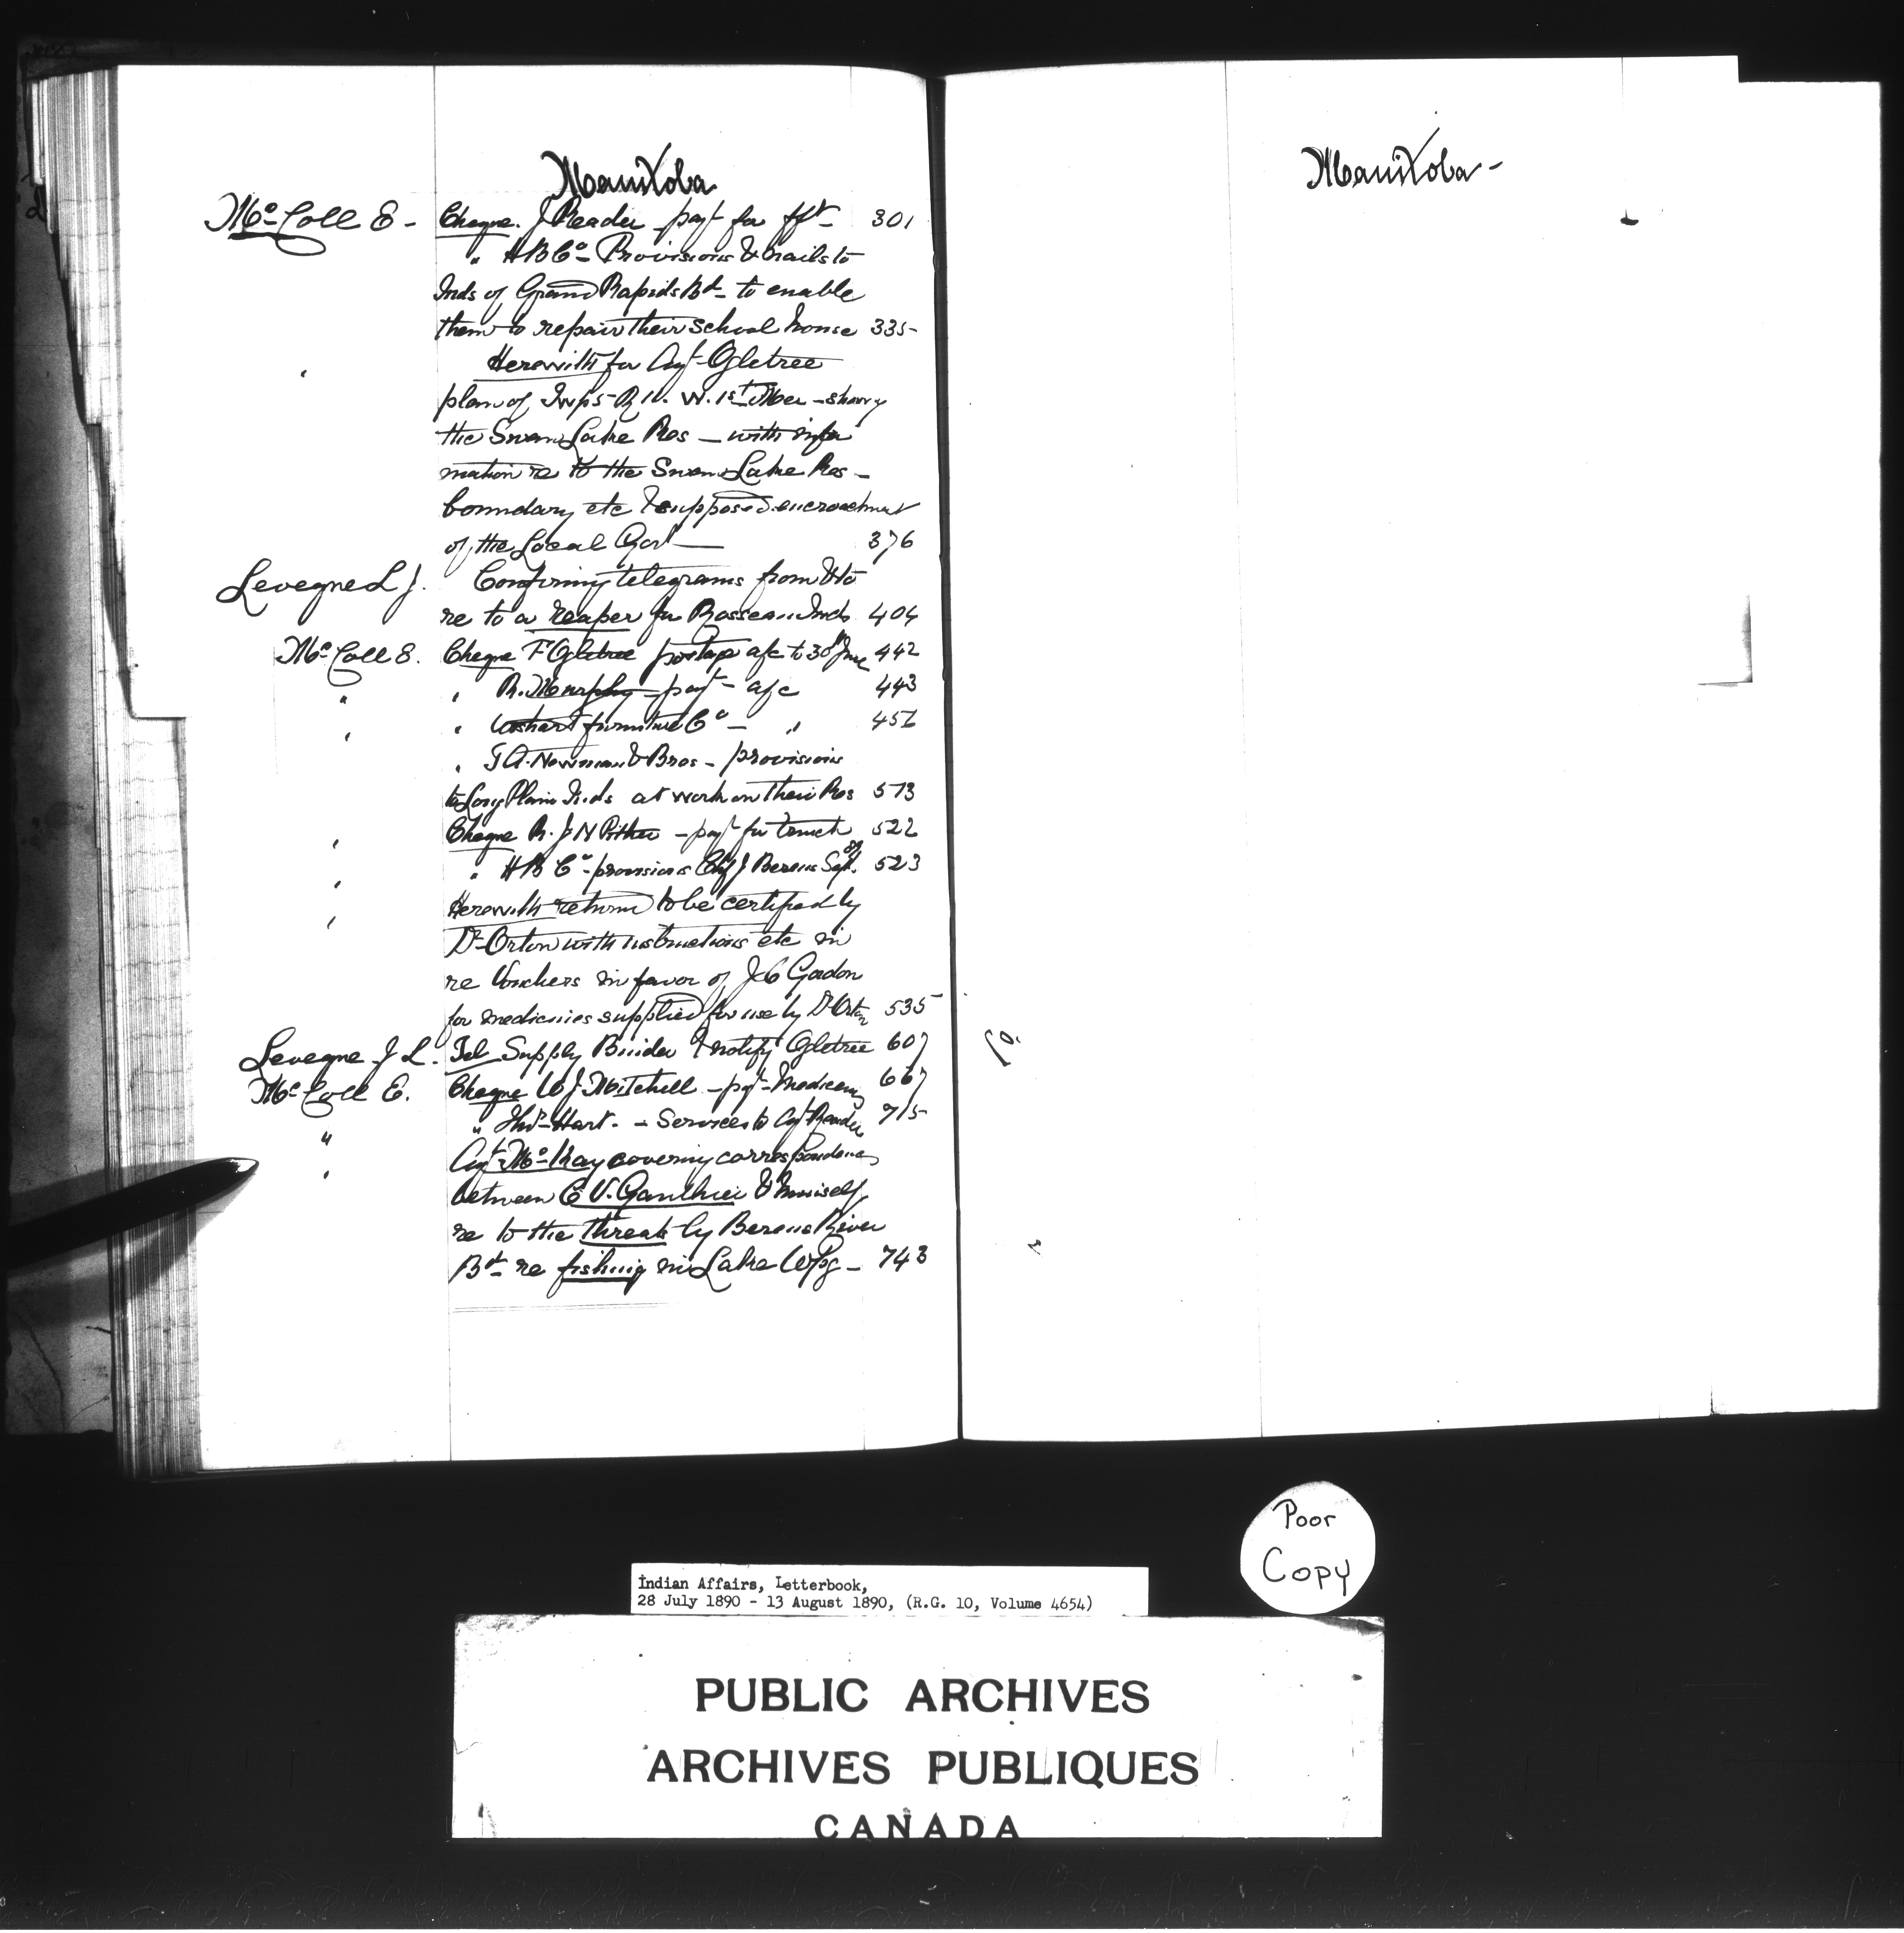 Manitoba
Mc Coll E - Cheque. J Reader payt for fft - 301
" H B Co - Provisions & nails to
Inds of Grand Rapids Bd - to enable
them to repair their school house 335
" Herewith for Agt Ogletree
plan of Twps - R 11. W. 1st Mer - showg
the Swan Lake Res - with infor
mation re to the Swan Lake Res -
boundary etc & supposed encroachment
of the Local Govt — 376
Levegne L J. Confirming telegrams from & to
re to a reaper for Rosseau Inds 404
Mc Coll E. Cheque F Ogletree postage a/c to 30th June 442
" " R. Murphy - payt - a/c 443
" " furniture Co - "
" T A. Newman & Bros - provisions
to Long Plain Inds at work on their Res 513
" Cheque R. J N Pither - payt for truck 522
" " H B Co - provisions Chf J Berens Sept. 89 523
" Herewith return to be certified by
Dr Orton with instructions etc in
re Vouchers in favor of J C Gordon
for medicines supplied for use by Dr Orton 535
Levegne J L. Tel Supply Binder & notify Ogletree 607
Mc Coll E. Cheque W J Mitchell - pyt - Medicines 667
" " Thos Hart. - Services to Agt Reader 715
" Agt Mc Kay covering correspondence
between C V. Gauthier & himself
re to the threats by Berens River
Bd - re fishing in Lake Wpg - 743
Manitoba -
Poor
Copy
Indian Affairs, Letterbook,
28 July 1890 - 13 August 1890, (R.G. 10, Volume 4654)
PUBLIC ARCHIVES
ARCHIVES PUBLIQUES
CANADA